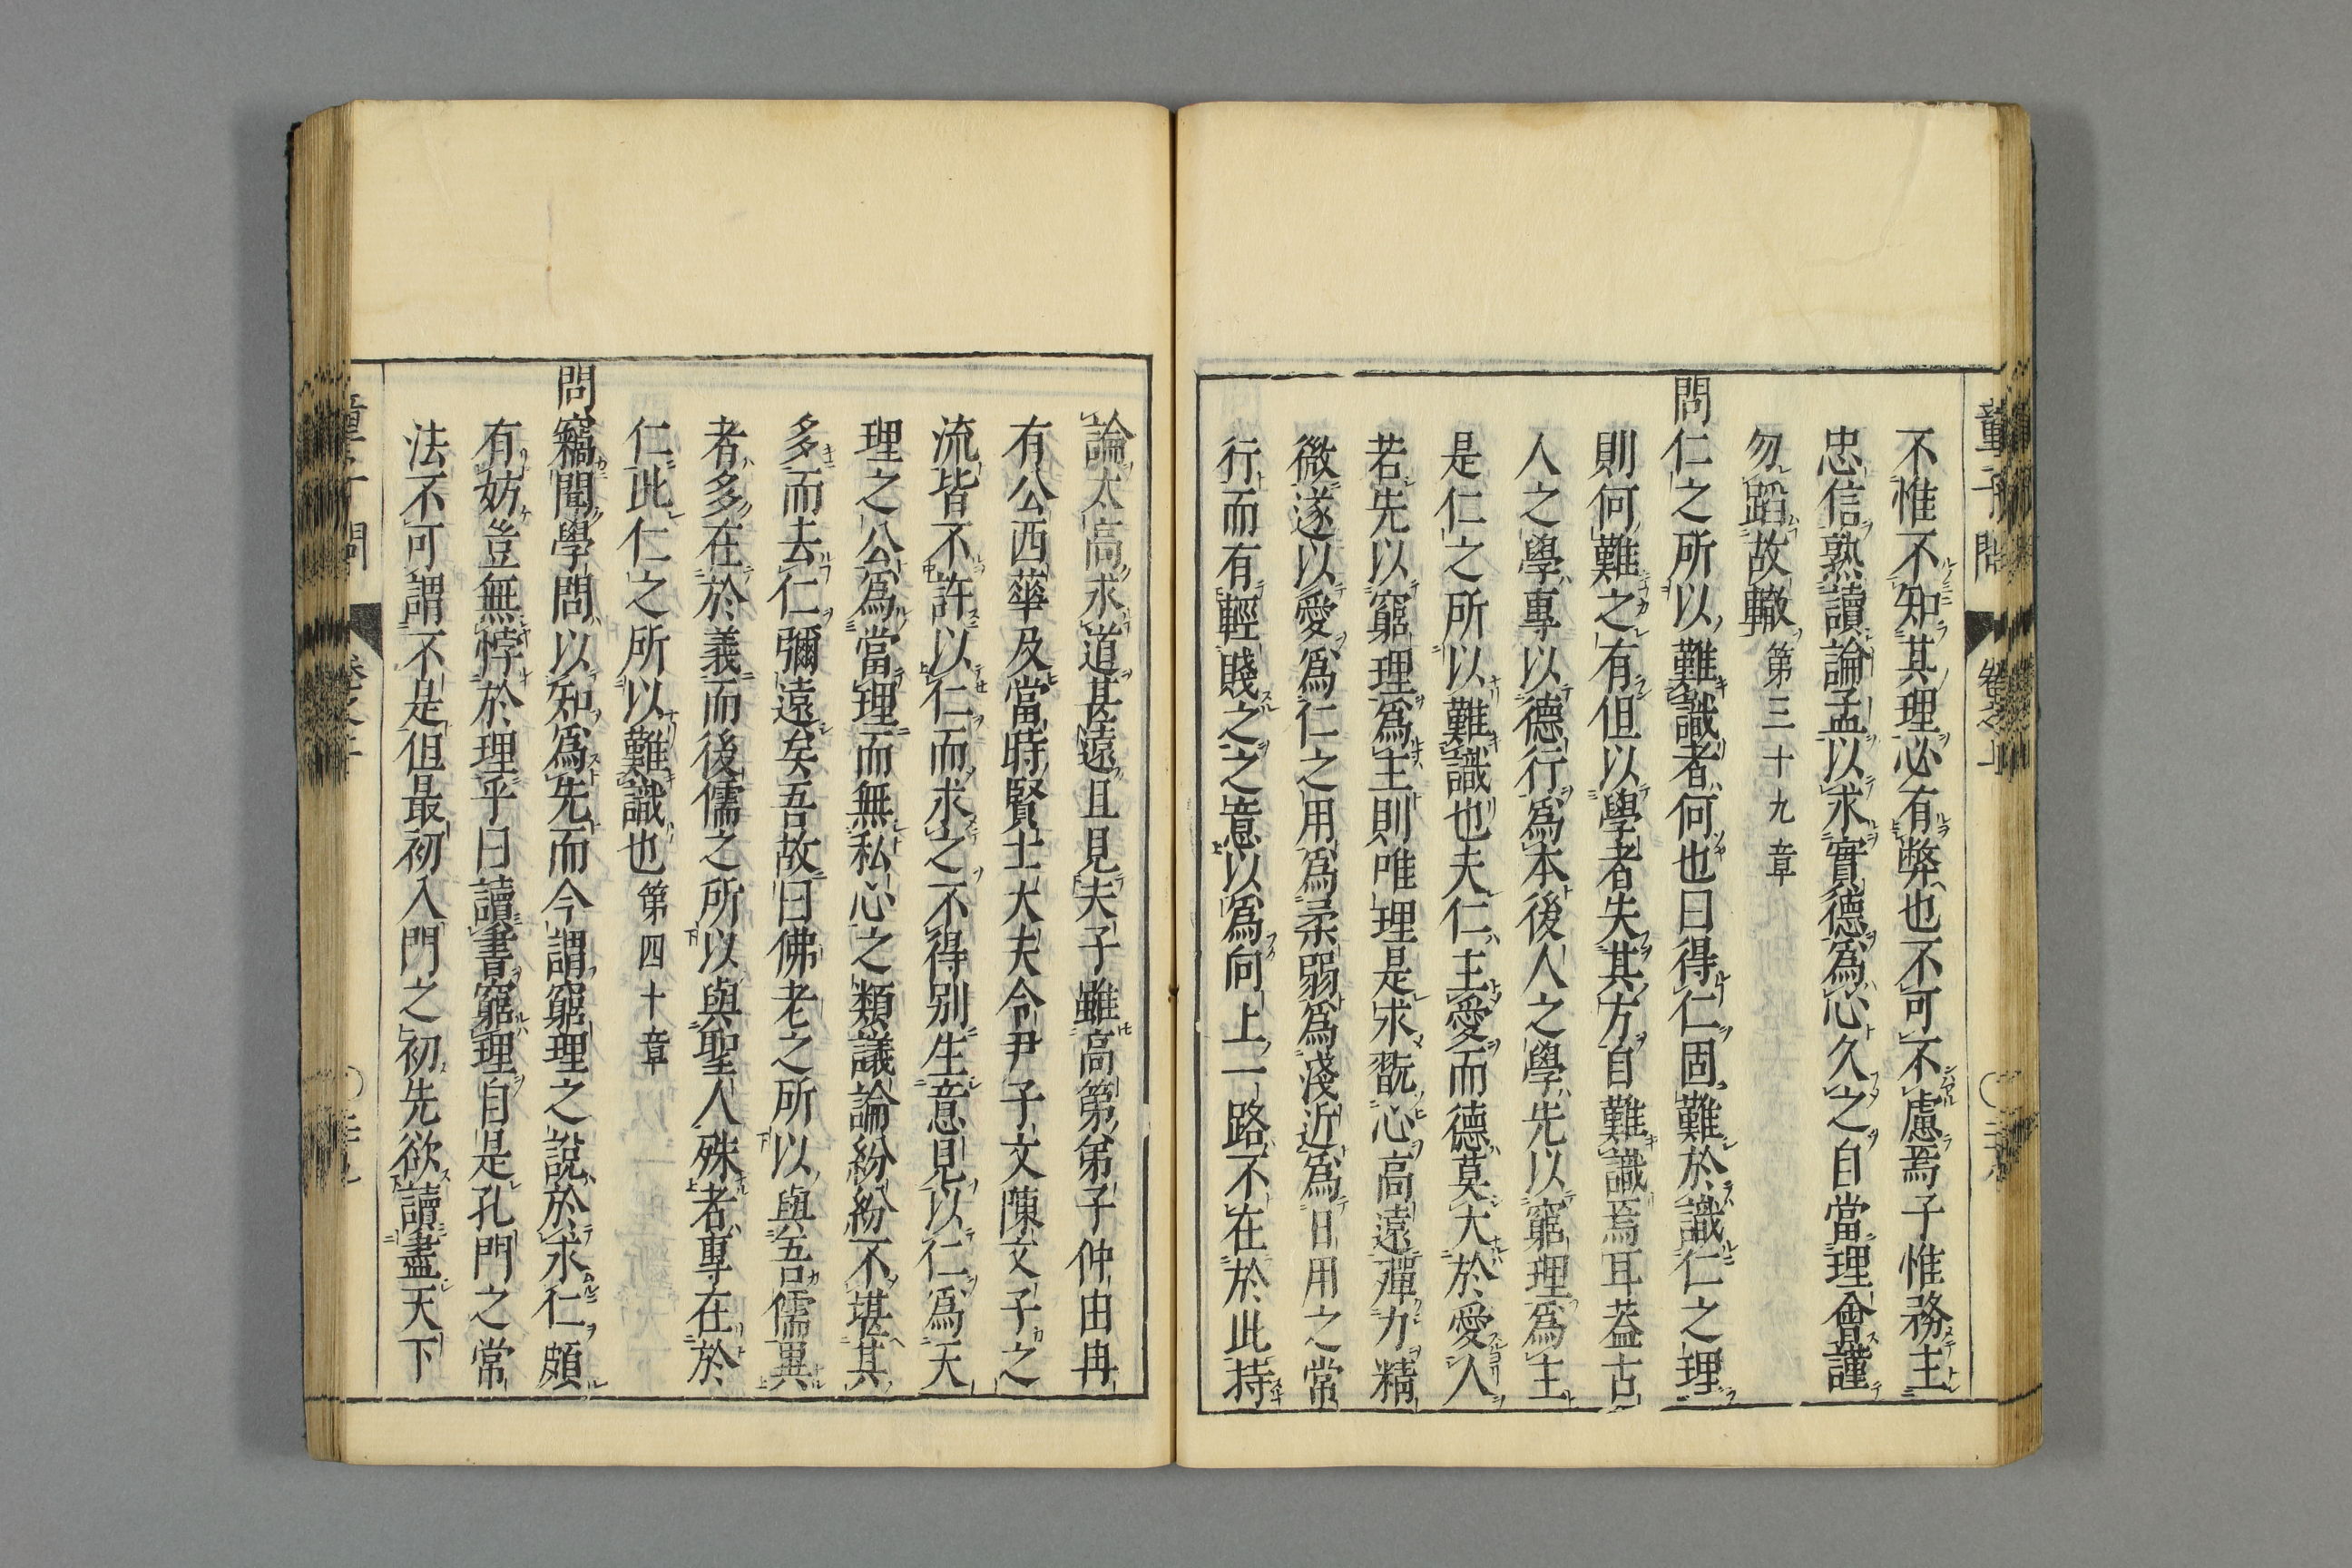 童子問 卷之上
不惟不知其理必有弊也不可不慮焉子惟務主
忠信熟讀論孟以求實德爲心久之自當理會謹
勿蹈故轍第三十九章
問仁之所以難識者何也曰得仁固難於識仁之理
則何難之有但以學者失其方自難識焉耳蓋古
人之學專以德行爲本後人之學先以窮理爲主
是仁之所以難識也夫仁主愛而德莫大於愛人
若先以窮理爲主則唯理是求翫心高遠殫力精
微遂以愛爲仁之用爲柔弱爲淺近爲日用之常
行而有輕賤之之意以爲向上一路不在於此持
論太高求道甚遠且見夫子雖高第弟子仲由冉
有公西華及當時賢士大夫令尹子文陳文子之
流皆不許以仁而求之不得別生意見以仁爲天
理之公爲當理而無私心之類議論紛紛不堪其
多而去仁彌遠矣吾故曰佛老之所以與吾儒異
者多在於義而後儒之所以與聖人殊者專在於
仁此仁之所以難識也第四十章
問竊聞學問以知爲先而今謂窮理之說於求仁頗
有妨豈無悖於理乎曰讀書窮理自是孔門之常
法不可謂不是但最初入門之初先欲讀盡天下